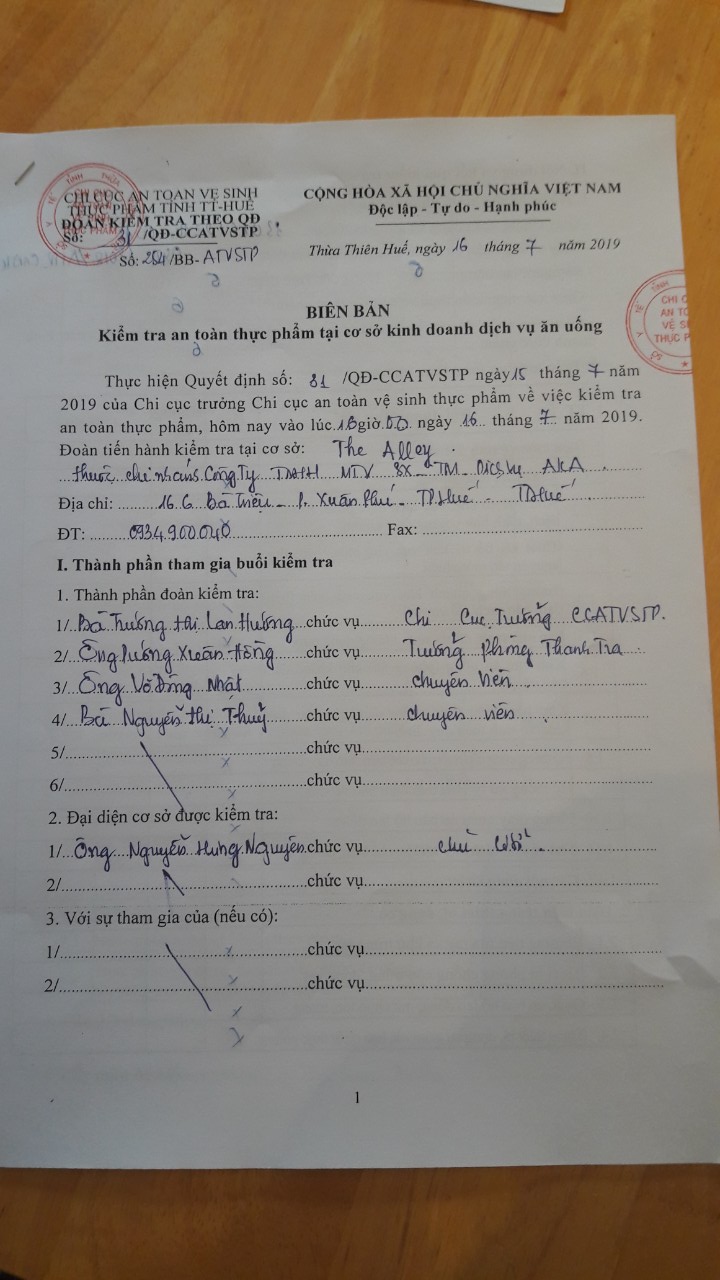 CHI CỤC AN TOÀN VỆ SINH
THỰC PHẨM TỈNH TT-HUẾ
ĐOÀN KIỂM TRA THEO QĐ
Số: 81 /QĐ-CCATVSTP
Số: 254 /BB- ATVSTP
CỘNG HÒA XÃ HỘI CHỦ NGHĨA VIỆT NAM
Độc lập - Tự do - Hạnh phúc
Thừa Thiên Huế, ngày 16 tháng 7 năm 2019
BIÊN BẢN
Kiểm tra an toàn thực phẩm tại cơ sở kinh doanh dịch vụ ăn uống
Thực hiện Quyết định số: 81 /QĐ-CCATVSTP ngày 15 tháng 7 năm
2019 của Chi cục trưởng Chi cục an toàn vệ sinh thực phẩm về việc kiểm tra
an toàn thực phẩm, hôm nay vào lúc giờ 00 ngày 16 tháng 7 năm 2019.
Đoàn tiến hành kiểm tra tại cơ sở: The Alley.
thuộc chi nhánh Công Ty TNHH MTV SX - TM - Dịch vụ AKA
Địa chỉ: 16.6 Bà Triệu - P. Xuân Phú - TP Huế - TT Huế
ĐT: 0934.900.040 Fax:
I. Thành phần tham gia buổi kiểm tra
1. Thành phần đoàn kiểm tra:
1/ Bà Trương Thị Lan Hương chức vụ Chi Cục Trưởng CCATVSTP.
2/ Ông Lương Xuân Hồng chức vụ Trưởng phòng Thanh Tra
3/ Ông Võ Đăng Nhật chức vụ chuyên viên
4/ Bà Nguyễn Thị Thuỷ chức vụ chuyên viên
5/ chức vụ
6/ chức vụ
2. Đại diện cơ sở được kiểm tra:
1/ Ông Nguyễn Hưng Nguyên chức vụ chủ cơ sở.
2/ chức vụ
3. Với sự tham gia của (nếu có):
1/ chức vụ
2/ chức vụ
1